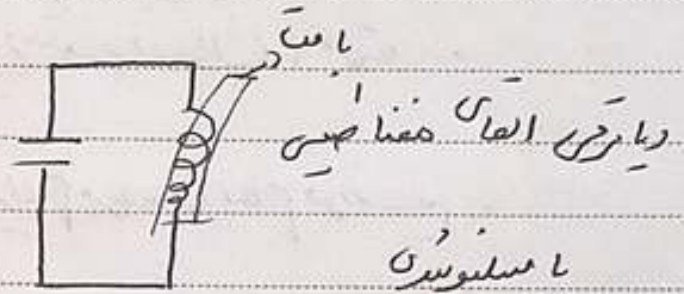 بافت
دیاترمی القای مغناطیسی
با سلنوئیدی